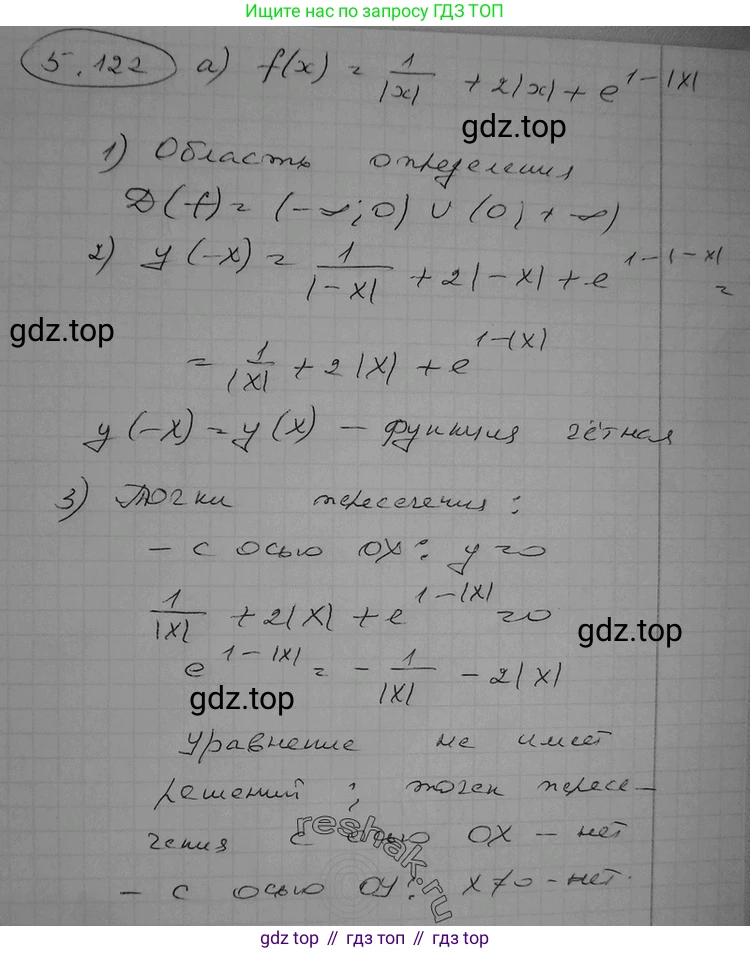 Ищите нас по запросу ГДЗ ТОП
5.122 а) f(x) = 1/|x| + 2|x| + e^(1-|x|)
gdz.top
1) Область определения
D(f) = (-∞; 0) ∪ (0; +∞)
2) y(-x) = 1/|-x| + 2|-x| + e^(1-|-x|) =
gdz.top
= 1/|x| + 2|x| + e^(1-|x|)
y(-x) = y(x) — функция чётная
3) Точки пересечения:
- с осью OX: y=0
1/|x| + 2|x| + e^(1-|x|) = 0
gdz.top
e^(1-|x|) = -1/|x| - 2|x|
gdz.top
уравнение не имеет
решений; точек пересе-
чения с осью OX - нет
reshak.ru
- с осью OY: x≠0 - нет.
gdz top // гдз топ // gdz top